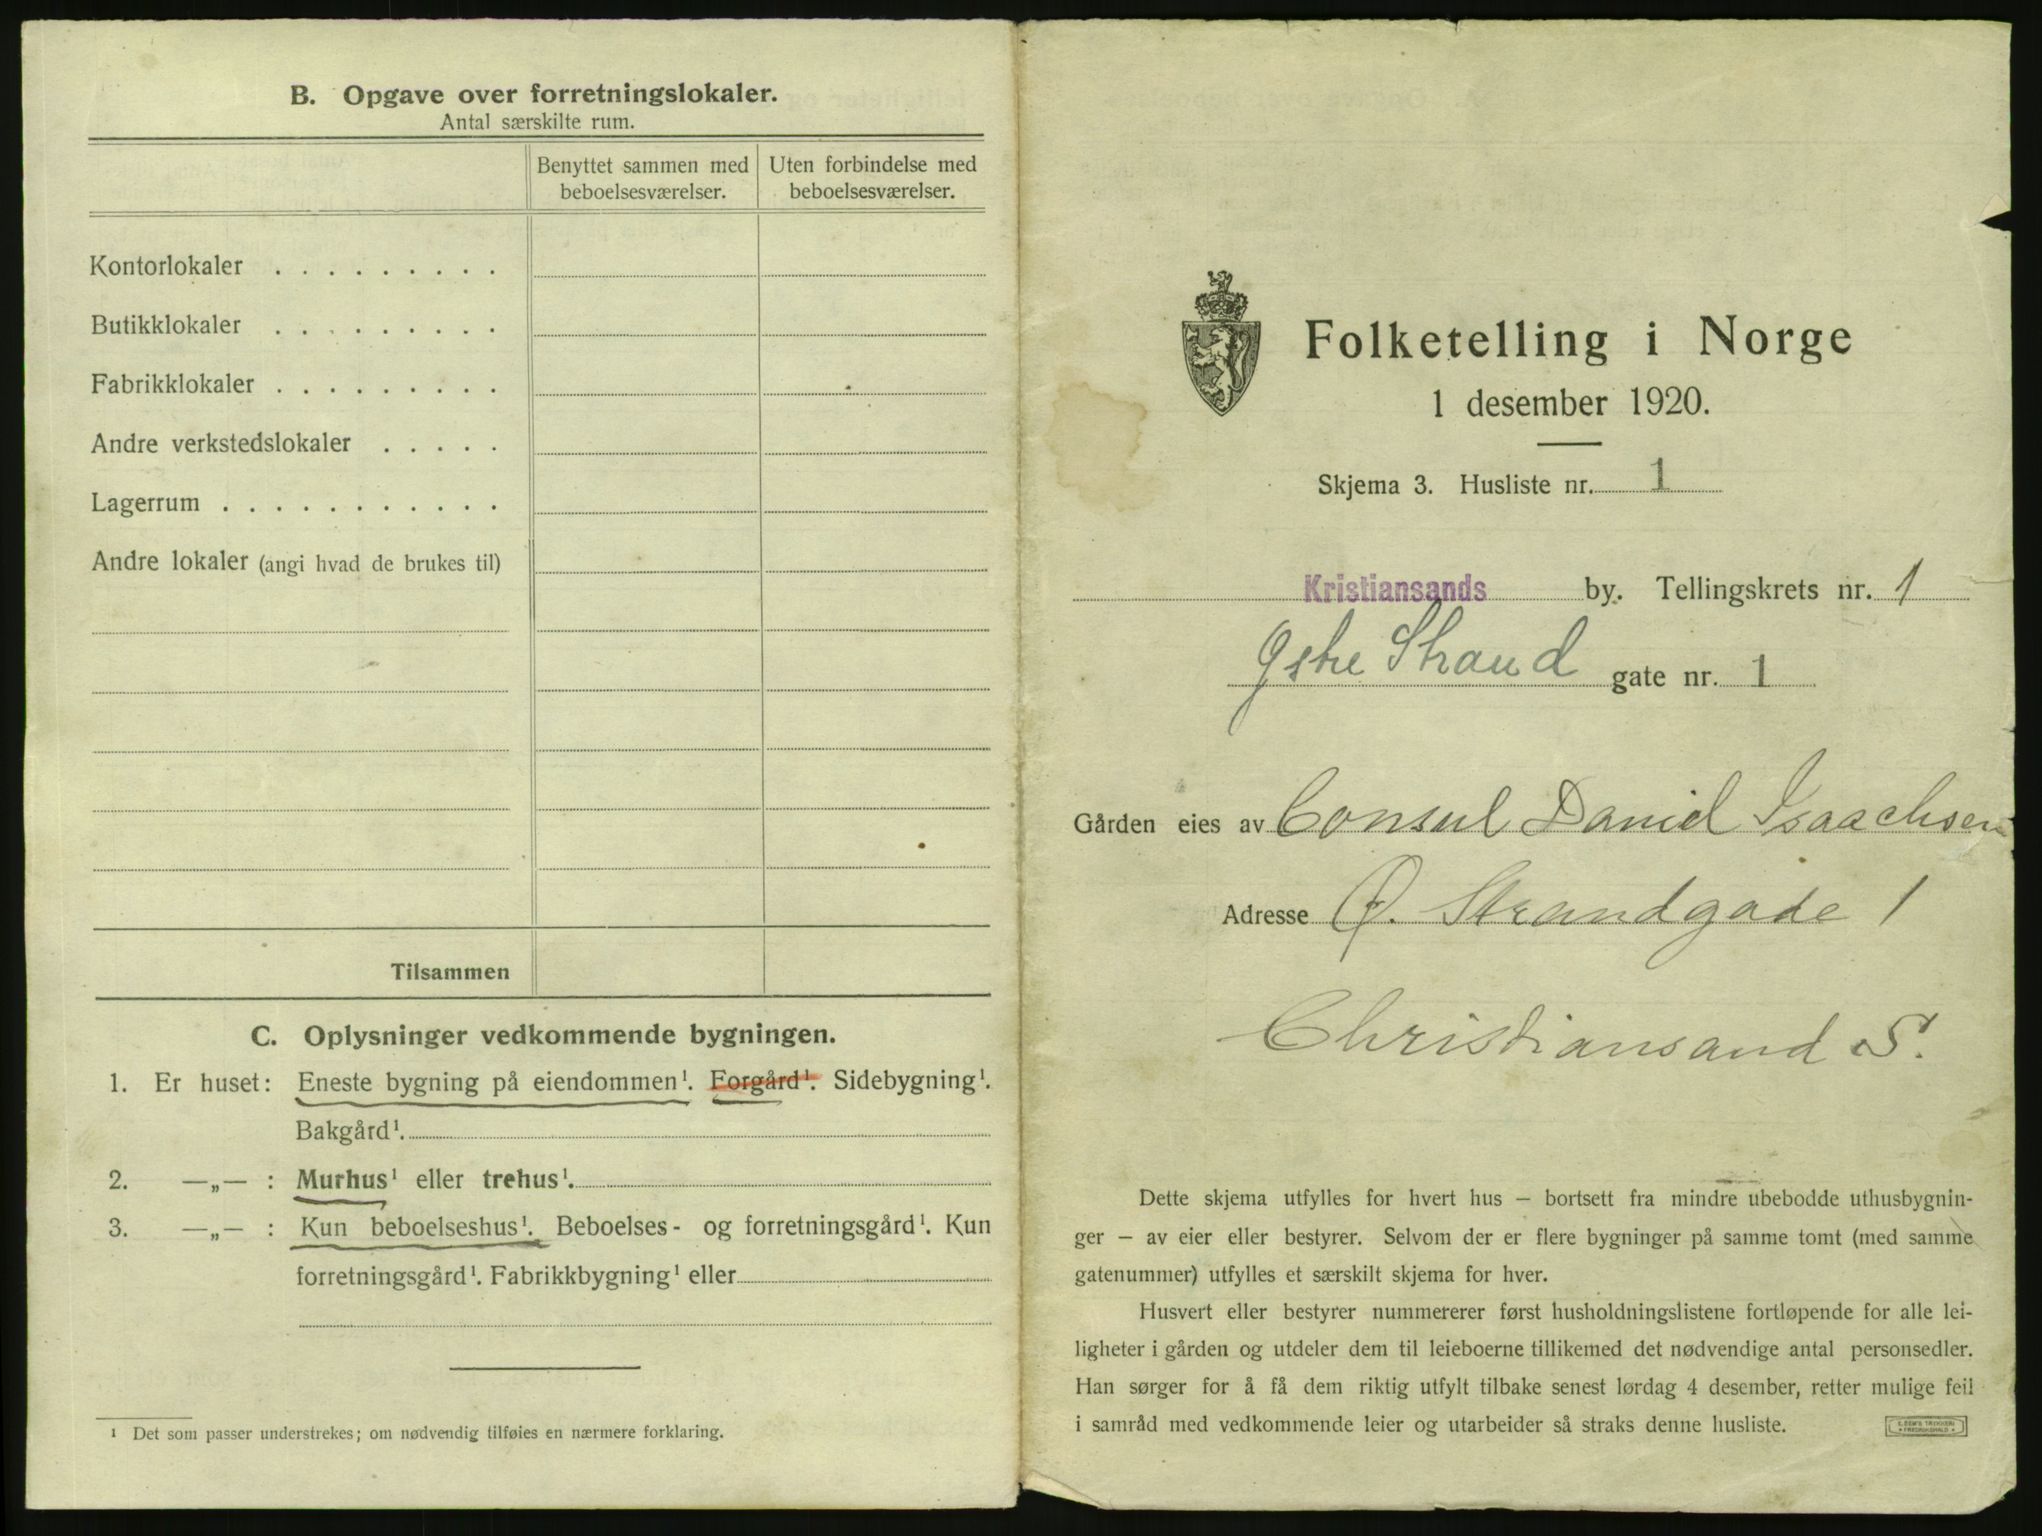 B. Opgave over forretningslokaler.
Antal særskilte rum.
Benyttet sammen med beboelsesværelser.
Uten forbindelse med beboelsesværelser.
Kontorlokaler . . . . . . . . .
Butikklokaler . . . . . . . . .
Fabrikklokaler . . . . . . . . .
Andre verkstedslokaler . . . . .
Lagerrum . . . . . . . . . . .
Andre lokaler (angi hvad de brukes til)
Tilsammen
C. Oplysninger vedkommende bygningen.
1. Er huset: Eneste bygning på eiendommen¹. Forgård¹. Sidebygning¹.
Bakgård¹.
2. —„— : Murhus¹ eller trehus¹.
3. —„— : Kun beboelseshus¹. Beboelses- og forretningsgård¹. Kun
forretningsgård¹. Fabrikkbygning¹ eller
¹ Det som passer understrekes; om nødvendig tilføies en nærmere forklaring.
Folketelling i Norge
1 desember 1920.
Skjema 3. Husliste nr. 1
Kristiansands by. Tellingskrets nr. 1
Østre Strand gate nr. 1
Gården eies av Consul Daniel Isaachsen
Adresse Ø. Strandgade 1
Christiansand S.
Dette skjema utfylles for hvert hus – bortsett fra mindre ubebodde uthusbygnin-
ger – av eier eller bestyrer. Selvom der er flere bygninger på samme tomt (med samme
gatenummer) utfylles et særskilt skjema for hver.
Husvert eller bestyrer nummererer først husholdningslistene fortløpende for alle lei-
ligheter i gården og utdeler dem til leieboerne tillikemed det nødvendige antal personsedler.
Han sørger for å få dem riktig utfylt tilbake senest lørdag 4 desember, retter mulige feil
i samråd med vedkommende leier og utarbeider så straks denne husliste.
E. SEM'S TRYKKERI
FREDRIKSHALD